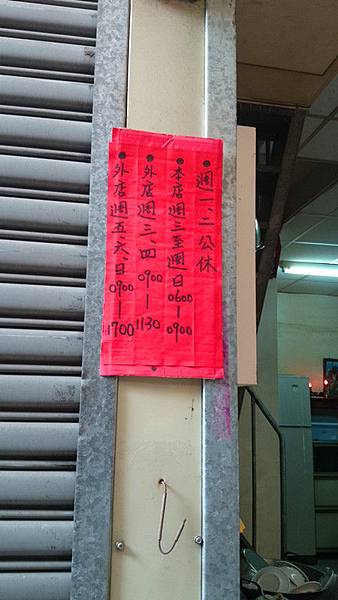 ●週一、二公休
●本店週三至週日0600-0900
●外店週三、四0900-1130
●外店週五、六日0900-1700